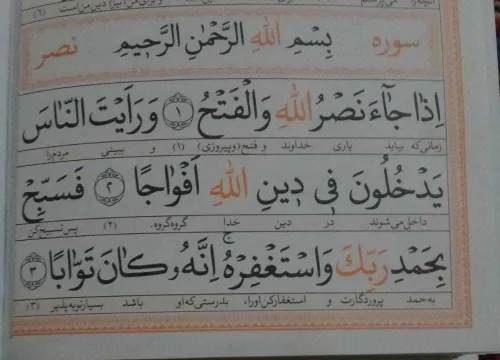 سوره بِسْمِ اللهِ الرَّحْمٰنِ الرَّحیٖمِ نصر
اِذٰا جٰٓاءَ نَصْرُ اللهِ وَ الْفَتْحُ ﴿۱﴾ وَ رَاَیْتَ النّٰاسَ
زمانی‌که بیاید یاری خداوند و فتح(وپیروزی) (۱) و ببینی مردم‌را
یَدْخُلُونَ فیٖ دیٖنِ اللهِ اَفْوٰاجًا ﴿۲﴾ فَسَبِّحْ
داخل‌می‌شوند در دین خدا گروه‌گروه. (۲) پس‌تسبیح‌کن
بِحَمْدِ رَبِّكَ وَ اسْتَغْفِرْهُ ج اِنَّهُ و كٰانَ تَوّٰابًا ﴿۳﴾
به‌حمد پروردگارت و استغفارکن‌اورا، بدرستی‌که‌او باشد بسیارتوبه‌پذیر (۳)